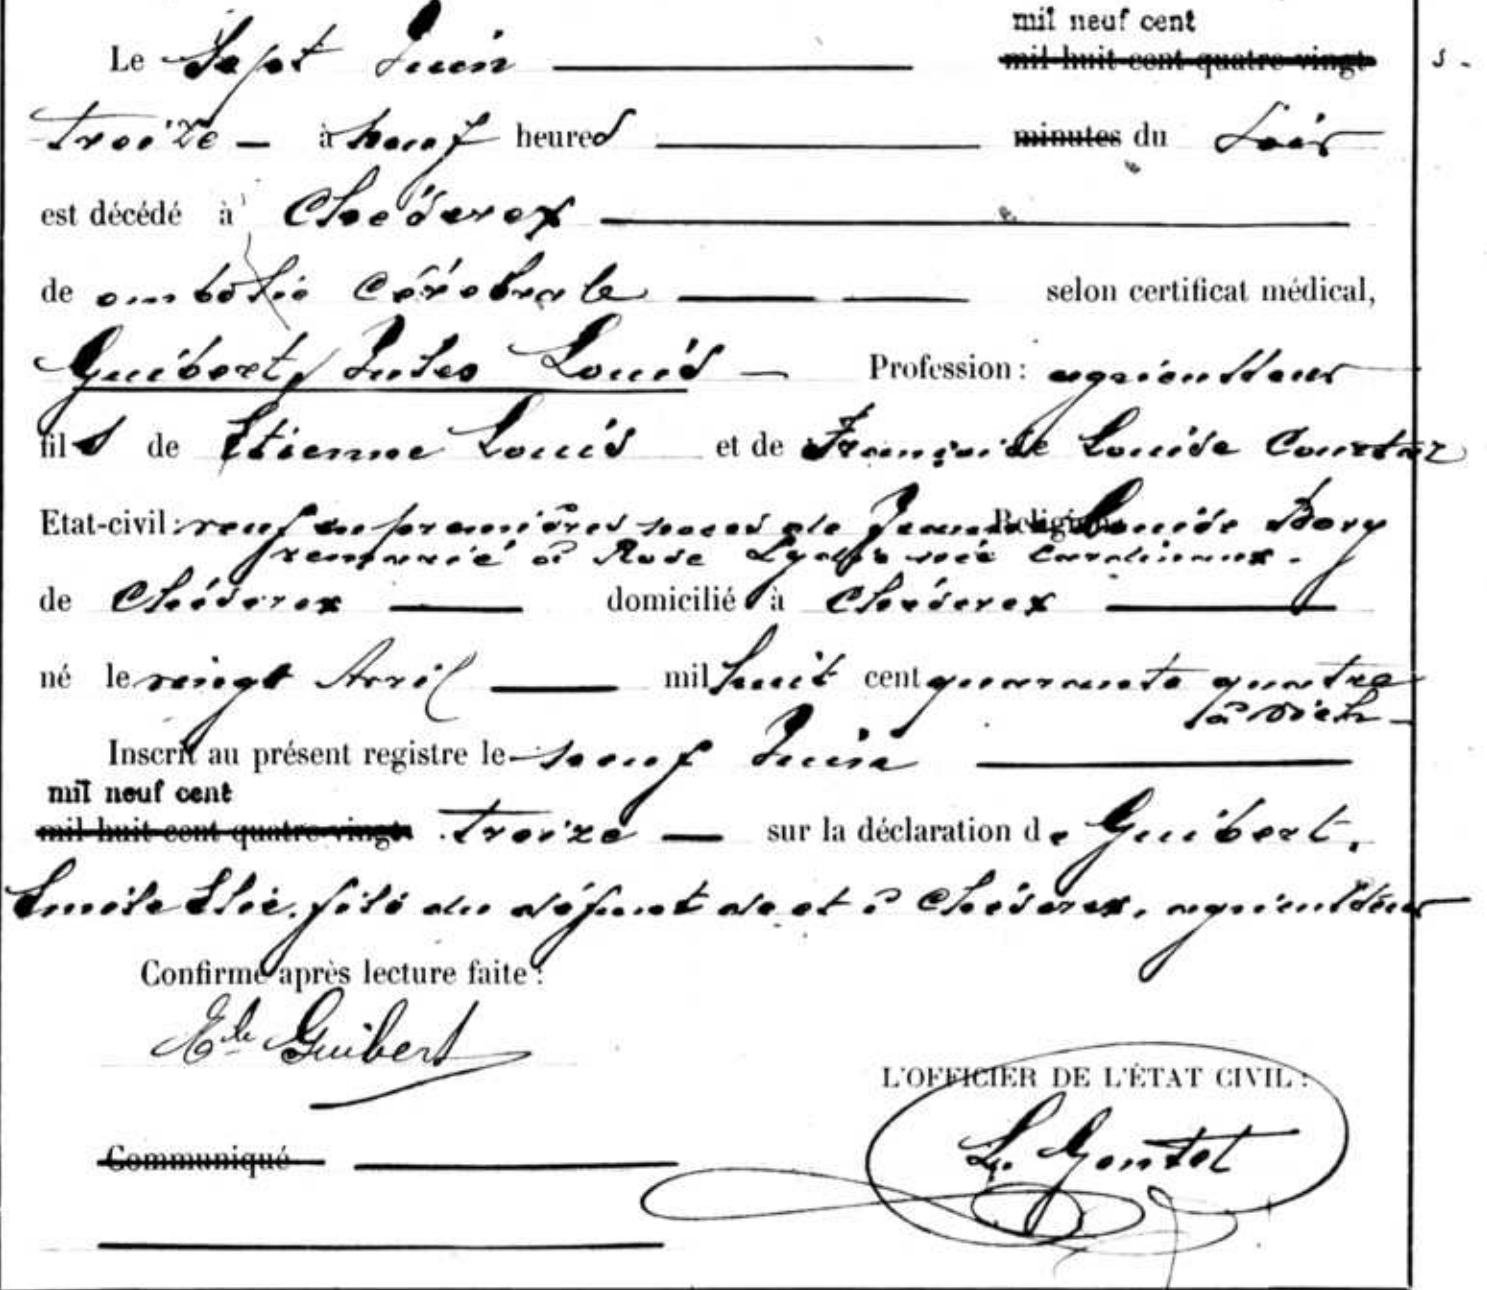 mil neuf cent
Le Sept Juin mil huit cent quatre-vingt
treize - à neuf heures minutes du soir
est décédé à Chéserex
de embolie Cérébrale selon certificat médical,
Guibert, Jules Louis - Profession: agriculteur
fils de Etienne Louis et de Françoise Louise
Etat-civil: veuf en premières noces de Jeanne Louise Bory Religion:
remarié à Rose Lydie née Cardinaux.
de Chéserex domicilié à Chéserex
né le vingt Avril mil huit cent quarante quatre
à
Inscrit au présent registre le neuf Juin
mil neuf cent
mil huit cent quatre-vingt treize sur la déclaration de Guibert,
Emile Elie, fils du défunt de et à Chéserex, agriculteur
Confirmé après lecture faite:
Guibert
L'OFFICIER DE L'ÉTAT CIVIL:
Communiqué